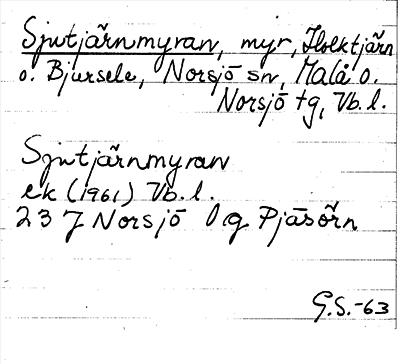 Sjutjärnmyran, myr, Holktjärn
o. Bjursele, Norsjö sn, Malå o.
Norsjö tg, Vb. l.
Sjutjärnmyran
ek (1961) Vb. l.
23 J Norsjö 0 g Pjäsörn
G.S.-63